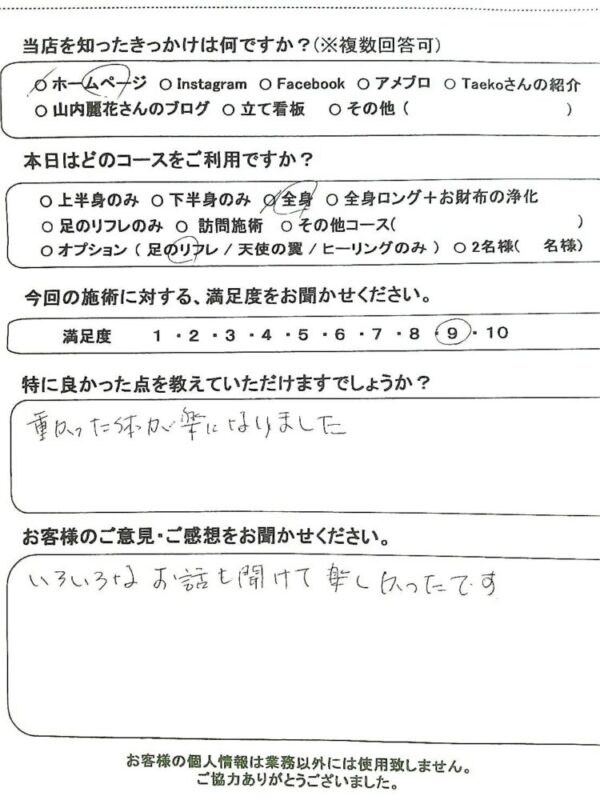 当店を知ったきっかけは何ですか？(※複数回答可)
○ ホームページ ○ Instagram ○ Facebook ○ アメブロ ○ Taekoさんの紹介
○ 山内麗花さんのブログ ○ 立て看板 ○ その他 ( )
本日はどのコースをご利用ですか？
○ 上半身のみ ○ 下半身のみ ○ 全身 ○ 全身ロング＋お財布の浄化
○ 足のリフレのみ ○ 訪問施術 ○ その他コース( )
○ オプション ( 足のリフレ / 天使の翼 / ヒーリングのみ ) ○ 2名様( 名様)
今回の施術に対する、満足度をお聞かせください。
満足度 1 ・ 2 ・ 3 ・ 4 ・ 5 ・ 6 ・ 7 ・ 8 ・ 9 ・ 10
特に良かった点を教えていただけますでしょうか？
重かった体が楽になりました
お客様のご意見・ご感想をお聞かせください。
いろいろなお話も聞けて楽しかったです
お客様の個人情報は業務以外には使用致しません。
ご協力ありがとうございました。